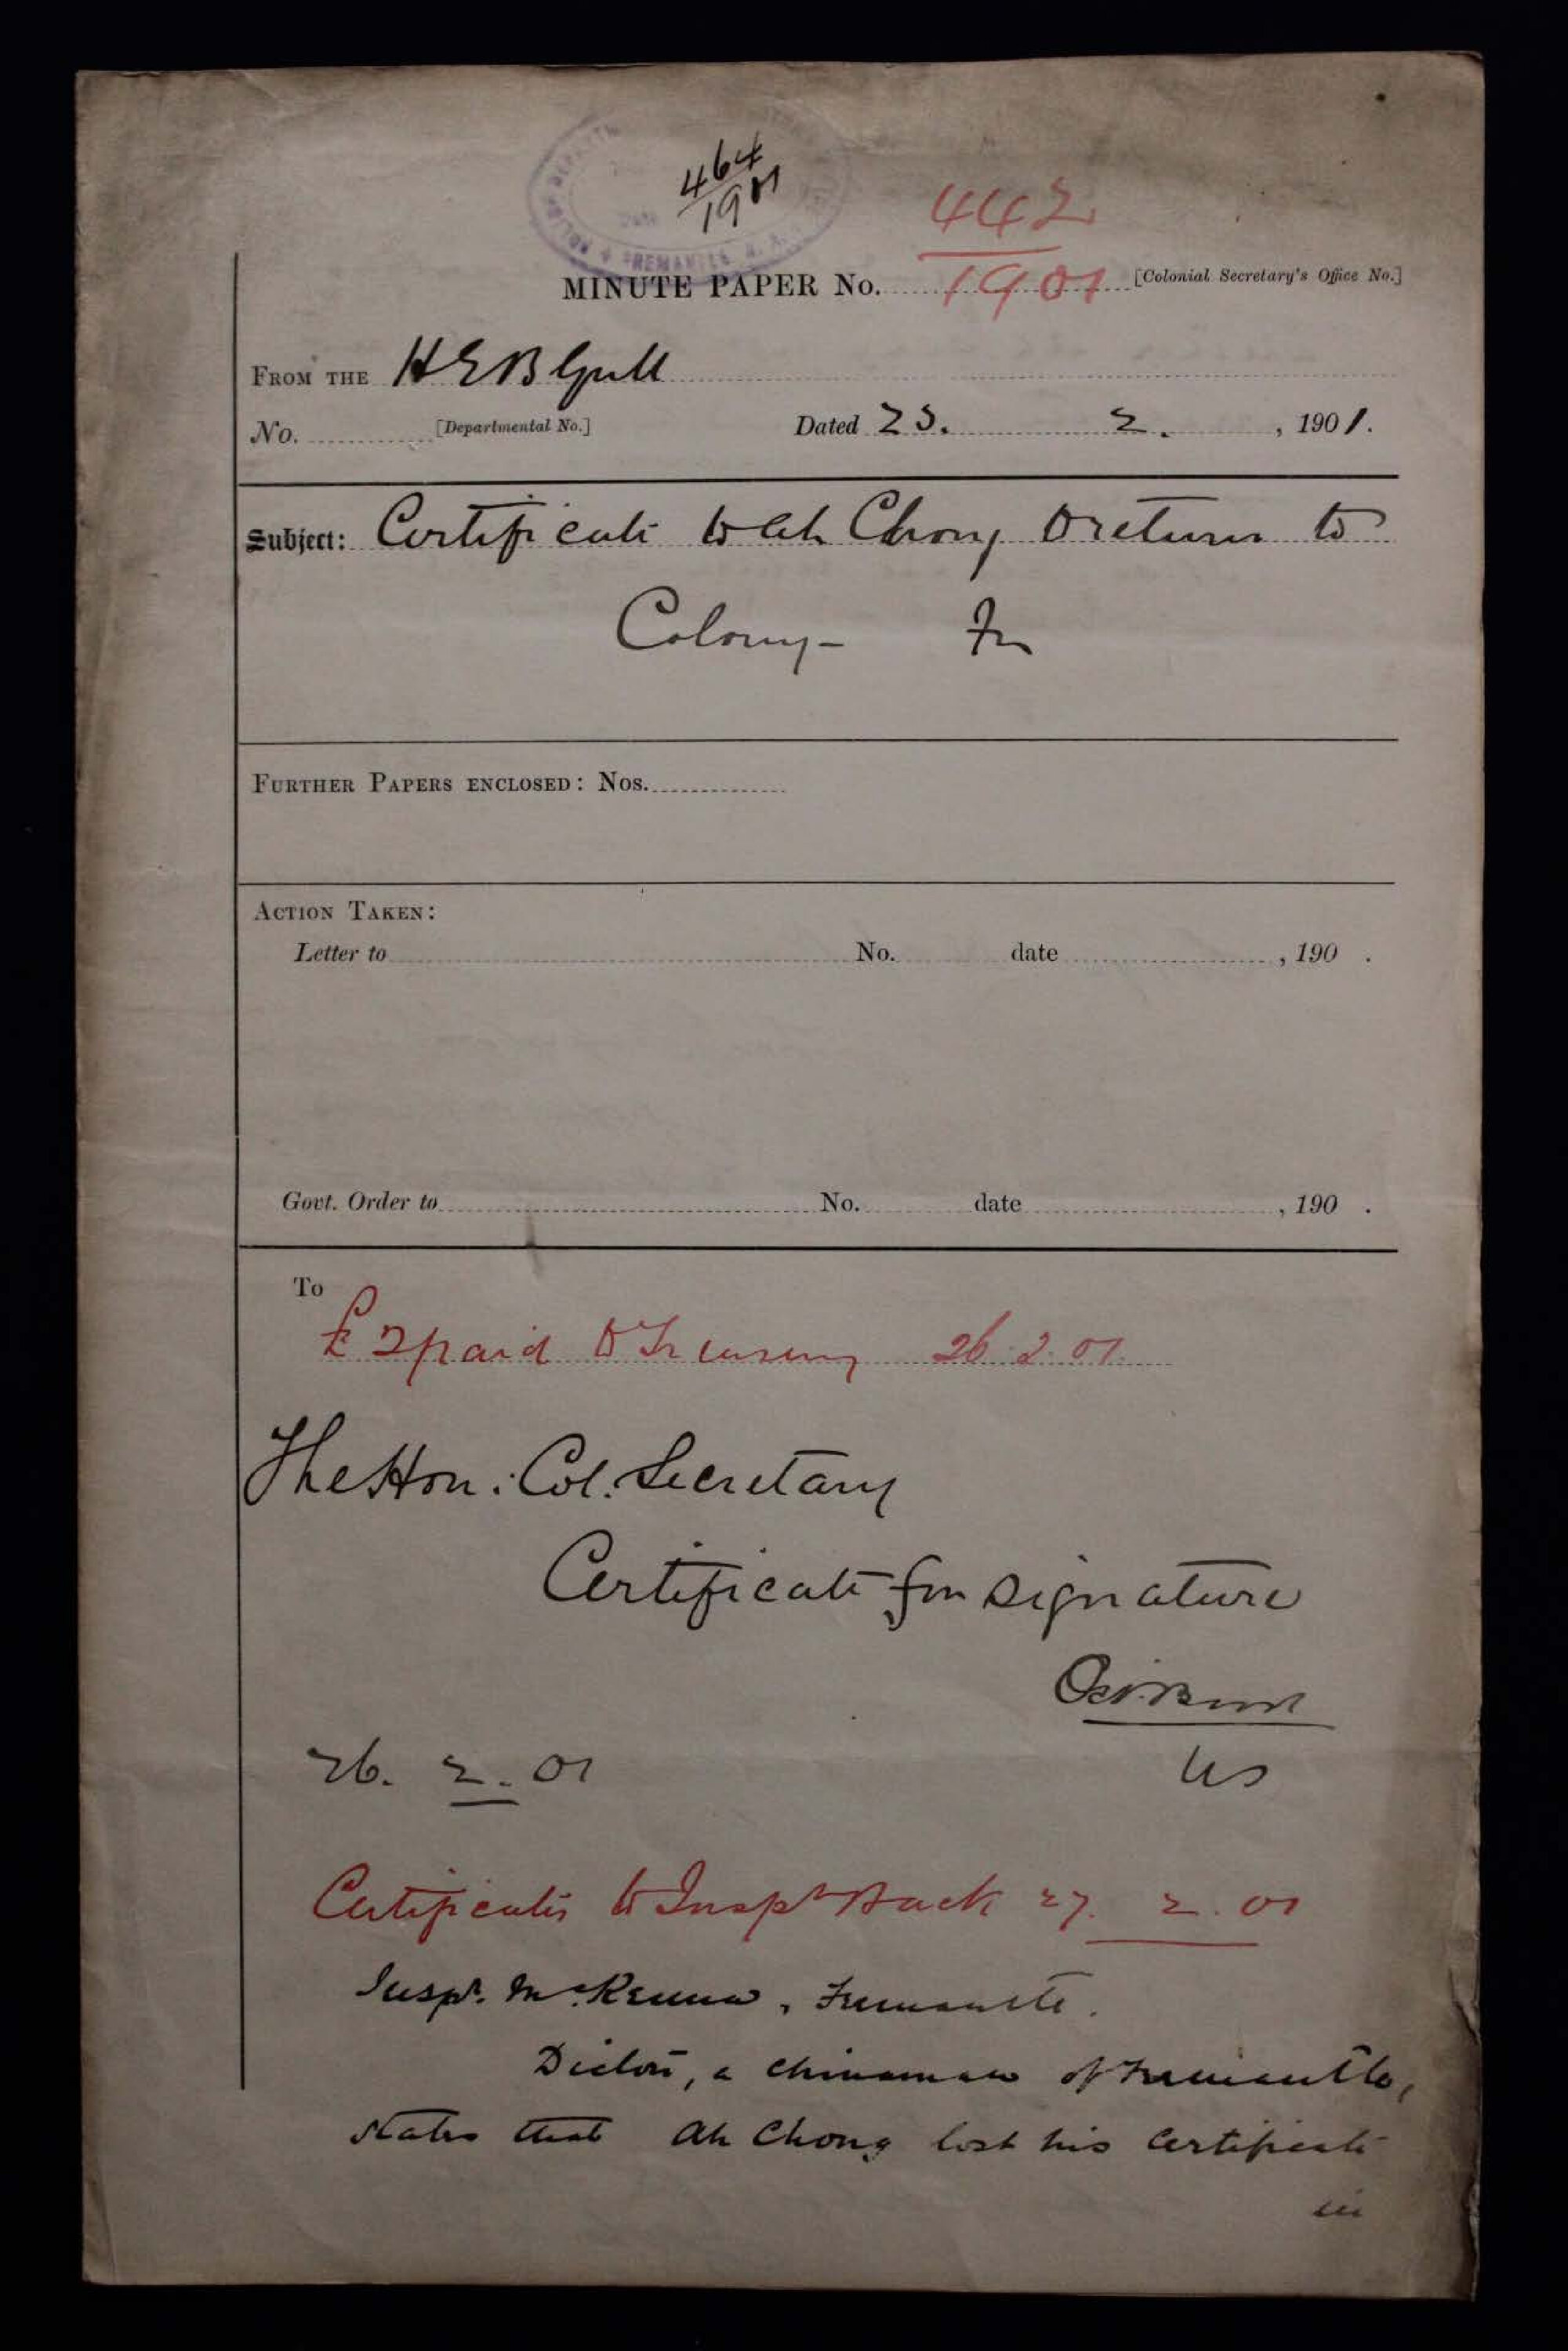 464
1901
442
MINUTE PAPER No. 1901 [Colonial Secretary's Office No.]
FROM THE H E B Gull
No. [Departmental No.] Dated 25. 2. , 1901.
Subject: Certificate to Ah Chong to return to
Colony - For
FURTHER PAPERS ENCLOSED: Nos.
ACTION TAKEN:
Letter to No. date , 190 .
Govt. Order to No. date , 190 .
To
£2 paid to Treasury 26.2.01.
The Hon: Col. Secretary
Certificate for signature
26. 2. 01 US
Certificates to Inspr Back 27. 2. 01
Inspr. McKenna, Fremantle.
a Chinaman of Fremantle,
states that Ah Chong lost his Certificate
in